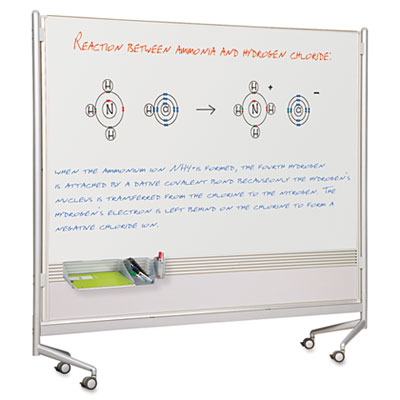 REACTION BETWEEN AMMONIA AND HYDROGEN CHLORIDE:
H H +  −
H N → H N
H H
WHEN THE AMMONIUM ION NH4+ IS FORMED, THE FOURTH HYDROGEN
IS ATTACHED BY A DATIVE COVALENT BOND BECAUSEONLY THE HYDROGEN'S
NUCLEUS IS TRANSFERRED FROM THE CHLORINE TO THE NITROGEN. THE
HYDROGEN'S ELECTRON IS LEFT BEHIND ON THE CHLORINE TO FORM A
NEGATIVE CHLORIDE ION.